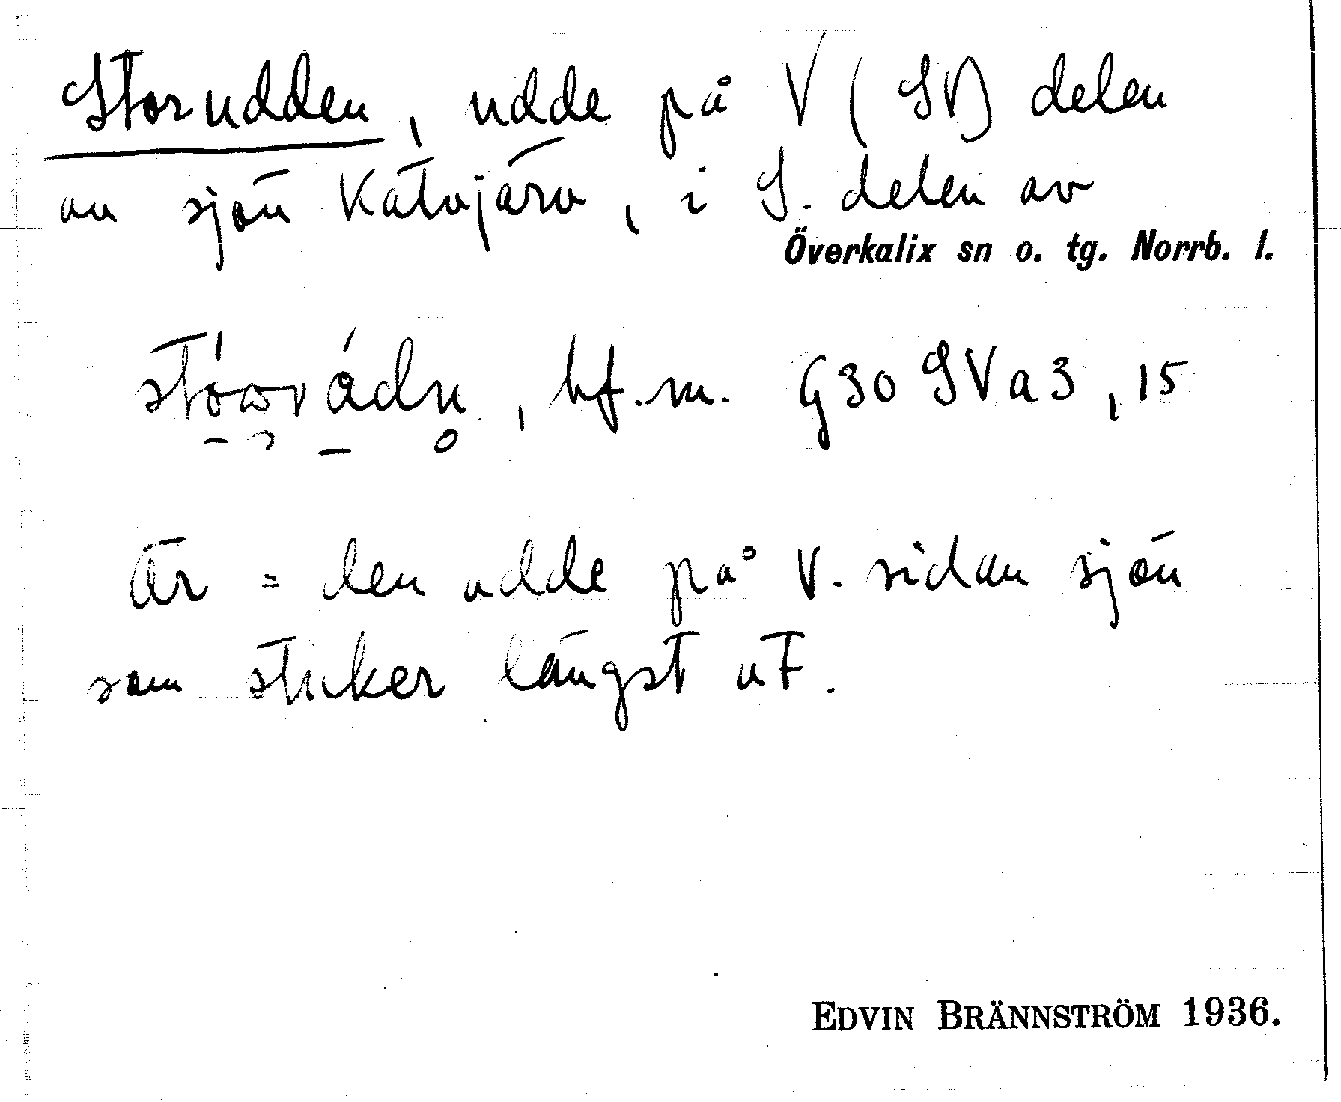 Storudden, udde på V (SV) delen
av sjön Kätvjärv, i S. delen av
Överkalix sn o. tg. Norrb. l.
, bf. m. G30 SVa3, 15
Är = den udde på V. sidan sjön
som sticker längst ut.
EDVIN BRÄNNSTRÖM 1936.